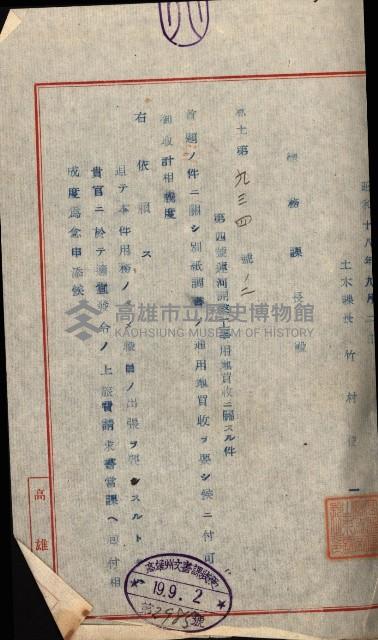 昭和十八年九月二日
土木課長 竹村
稅務課長殿
土第九三四號ノ二
第四號運河開鑿用地買收ニ關スル件
首題ノ件ニ關シ別紙調書ノ通用地買收ヲ要シ候ニ付可
御取計相成度
右依賴ス
追テ本件用務ノ出張ヲ要スルト
貴官ニ於テ適宜發令ノ上旅費請求書當課ヘ回付相
成度爲念申添候
高雄
高雄州文書課
19.9.2
第2985號
高雄市立歷史博物館
KAOHSIUNG MUSEUM OF HISTORY